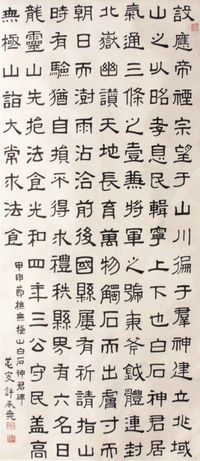 設應帝禋宗望于山川徧于羣神建立兆域
山之以昭孝息民輯寧上下也白石神君居
氣通三條之壹兼將軍之號秉斧鉞體連封
北嶽幽讚天地長育萬物觸石而出膚寸而
朝日而澍雨沾洽前後國縣屢有祈請指山
時有驗猶自損不得求禮秩縣界有六名日
龍靈山先挹法食光和四年三公守民蓋高
無極山詣大常求法食
甲申節橅無極山白石神君碑
芚叟許承堯